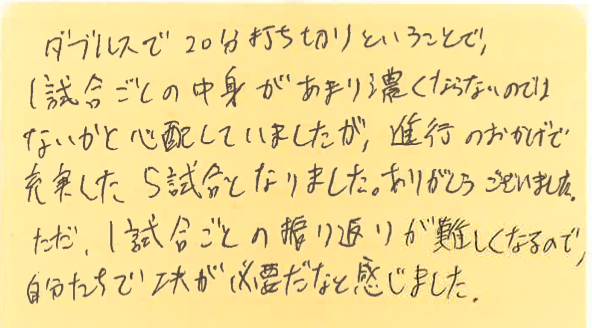 ダブルスで20分打ち切りということで、
1試合ごとの中身があまり濃くならないのでは
ないかと心配していましたが、進行のおかげで
充実した5試合となりました。ありがとうございました。
ただ、1試合ごとの振り返りが難しくなるので、
自分たちで工夫が必要だなと感じました。